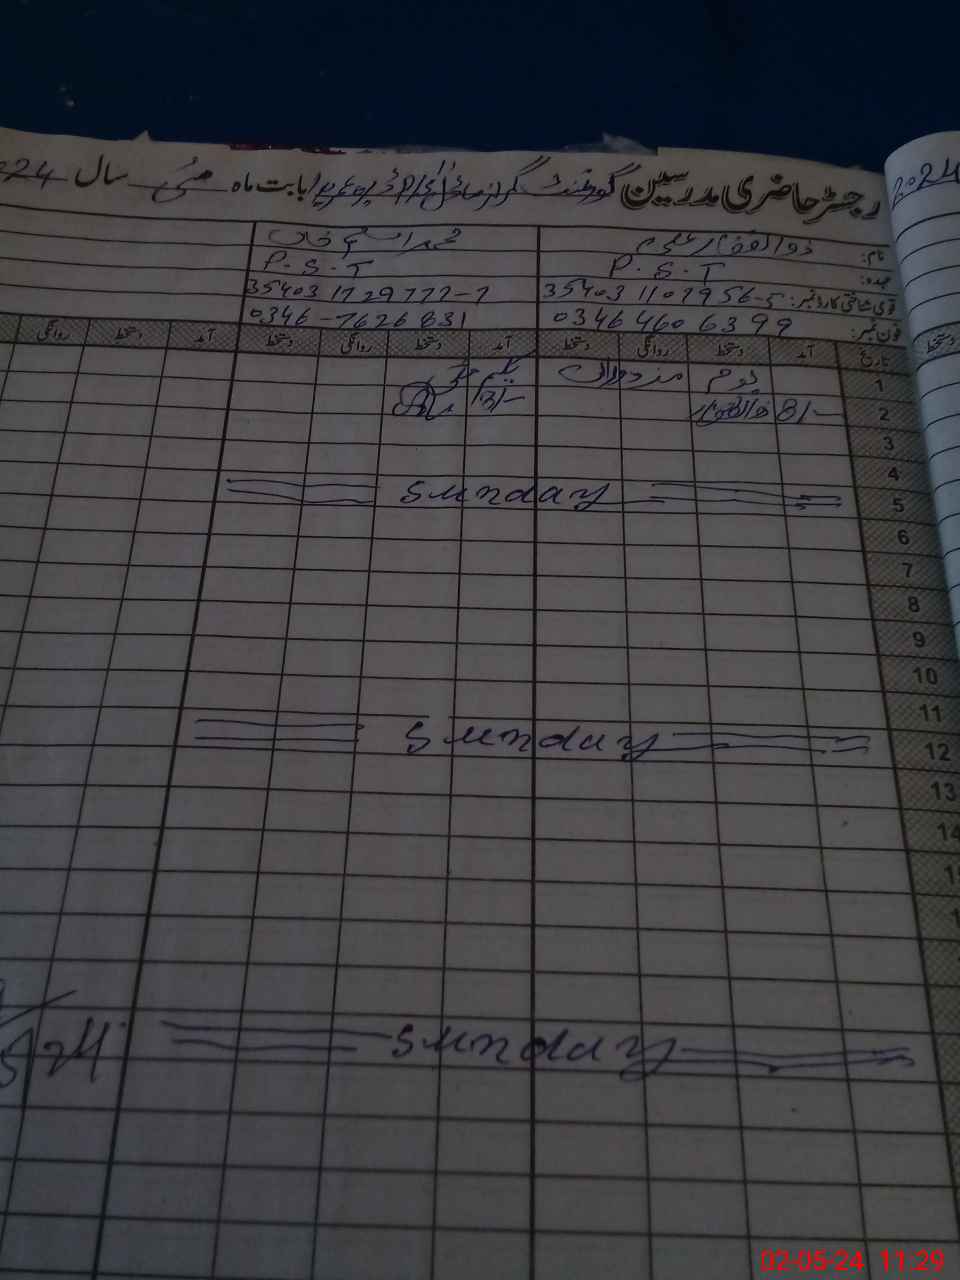 رجسٹر حاضری مدرسین گورنمنٹ گرلز بابت ماہ مئی سال 24
2024
نام: ذوالفقار علی محمد اسلم خاں
عہدہ: P.S.T P.S.T
قومی شناختی کارڈ نمبر: 35403 1107956-5 35403 1729777-7
فون نمبر: 0346 460 6399 0346-7626831
تاریخ آمد دستخط روانگی دستخط آمد دستخط روانگی دستخط آمد دستخط روانگی
دستخط
1 یوم مزدوراں یکم مئی
2 8/- ذوالفقار 8/-
3
4
5 Sunday
6
7
8
9
10
11
12 Sunday
13
14
Sunday
02-05-24 11:29